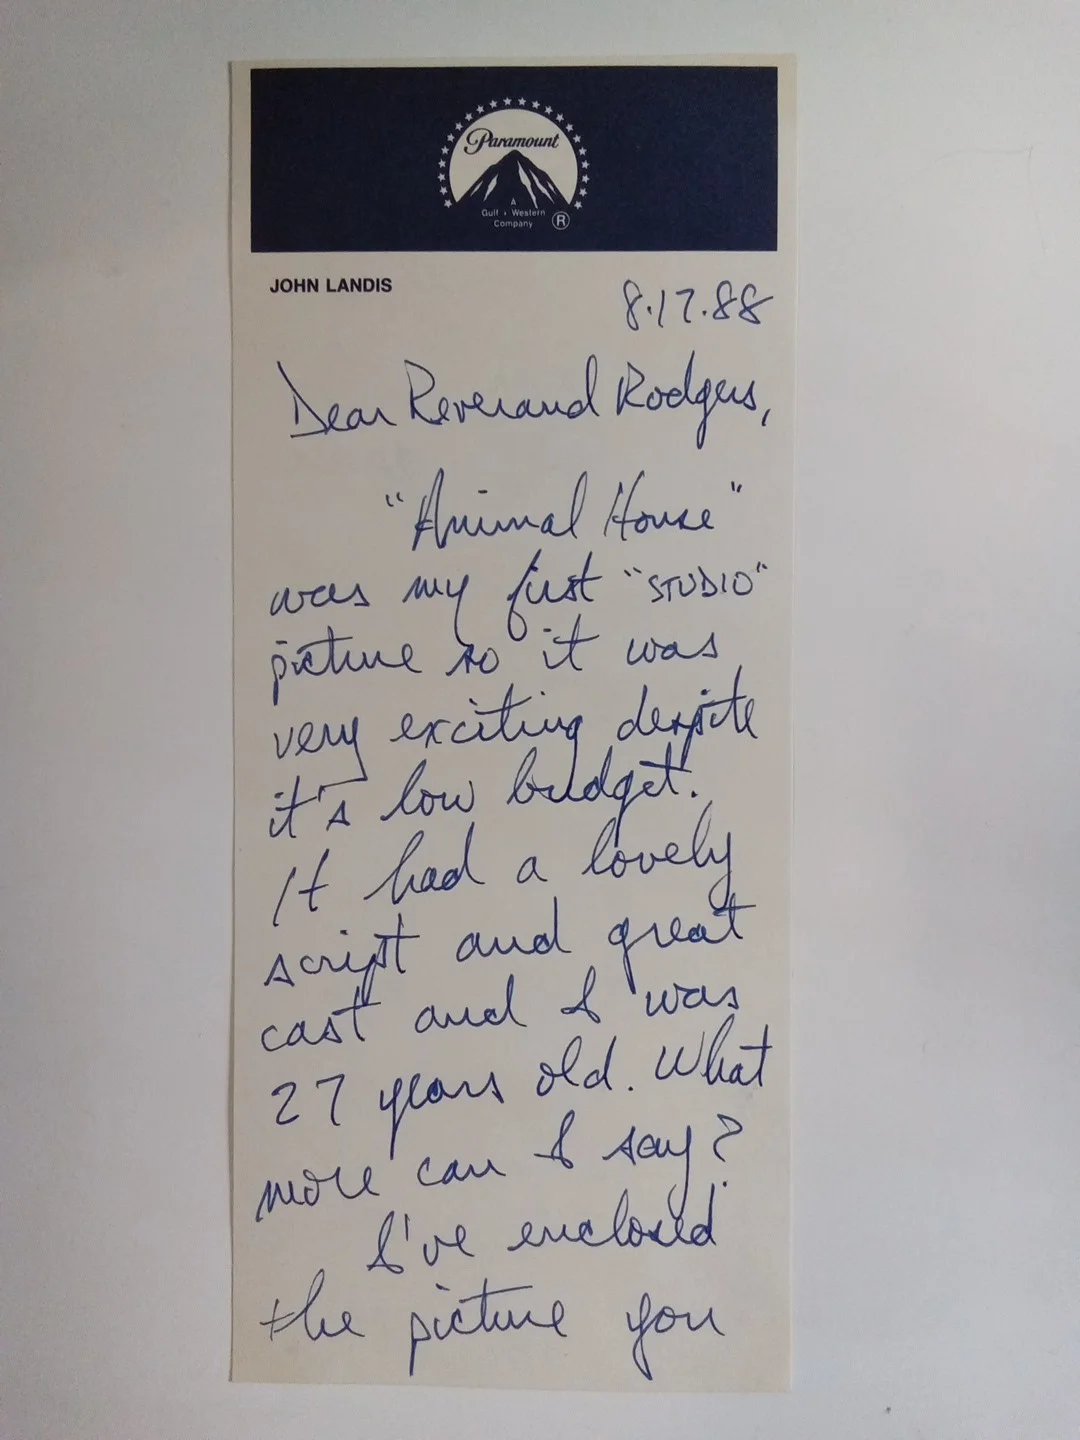 Paramount
A
Gulf + Western
Company
®
JOHN LANDIS
8.17.88
Dear Reverand Rodgers,
"Animal House"
was my first "STUDIO"
picture so it was
very exciting despite
it's low budget.
It had a lovely
script and great
cast and I was
27 years old. What
more can I say?
I've enclosed
the picture you